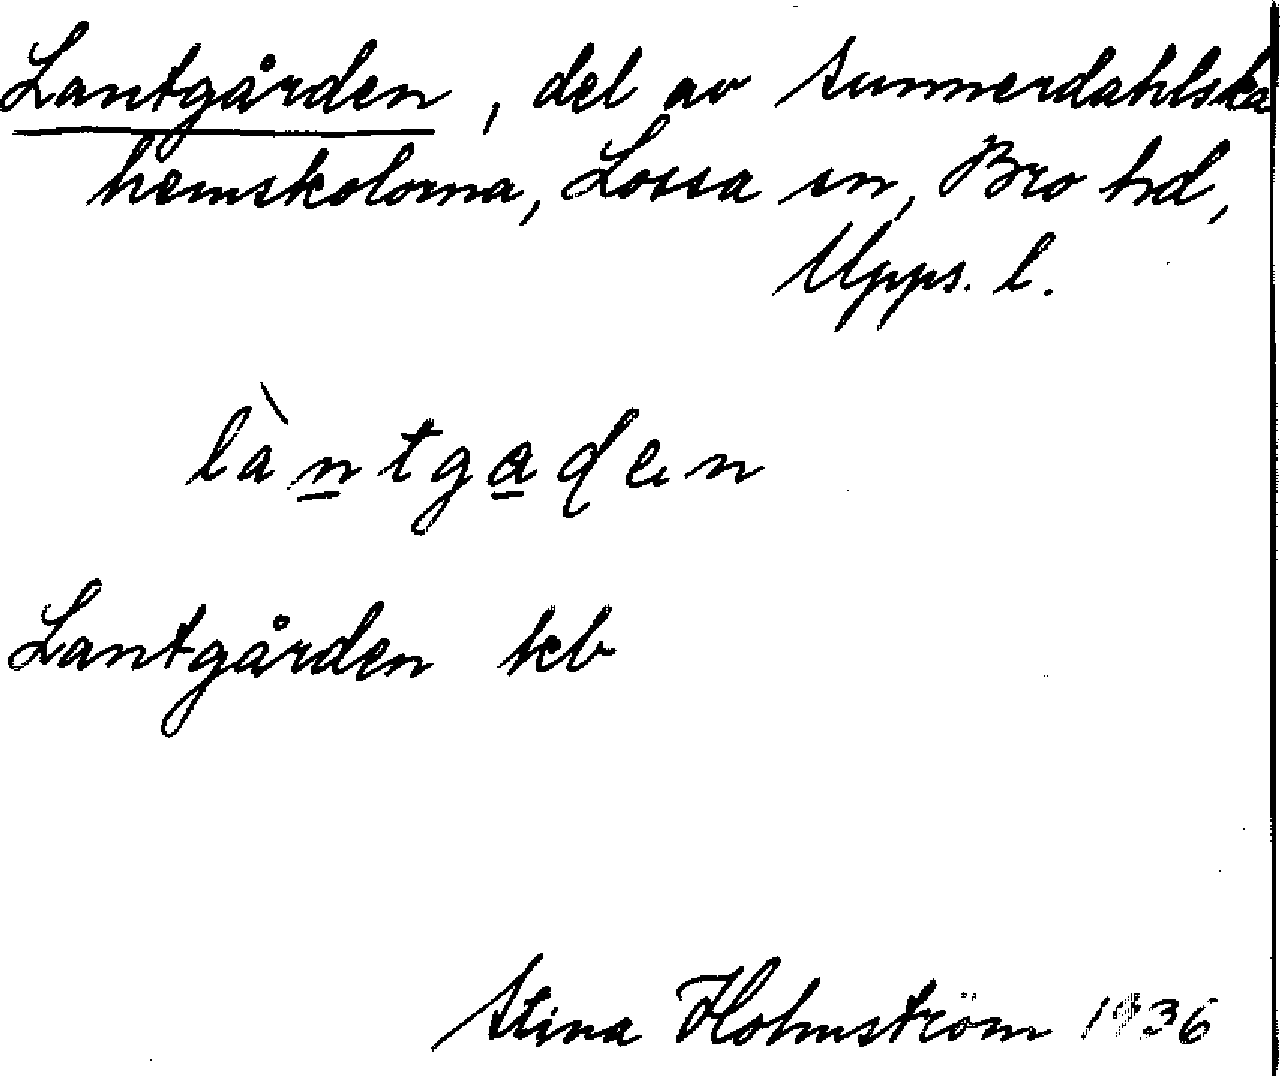 Lantgården, del av Sunnerdahlska
hemskolorna, Lossa sn, Bro hd,
Upps. l.
làntgaden
Lantgården kb
Stina Holmström 1936